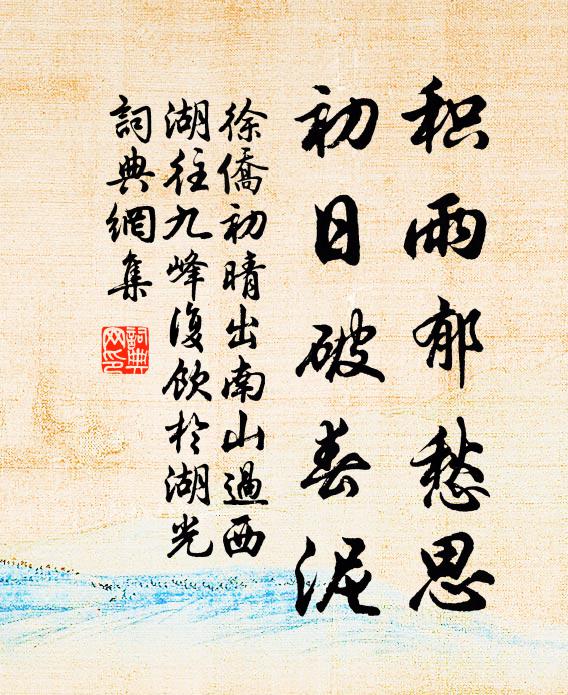 积雨郁愁思
初日破春泥
徐僑初晴出南山過西
湖往九峰復飲於湖光
詞典網集
詞典网印